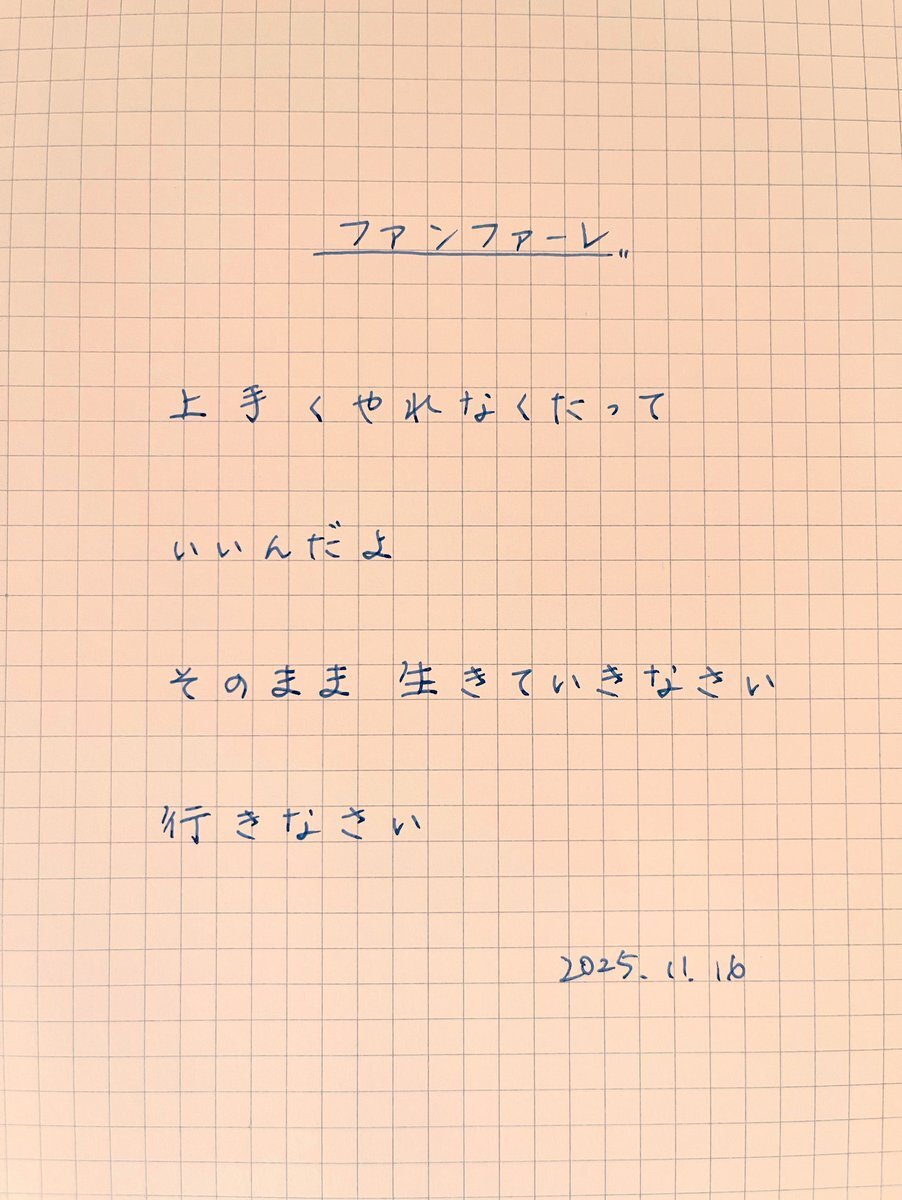 ファンファーレ〃
上手くやれなくたって
いいんだよ
そのまま 生きていきなさい
行きなさい
2025.11.16